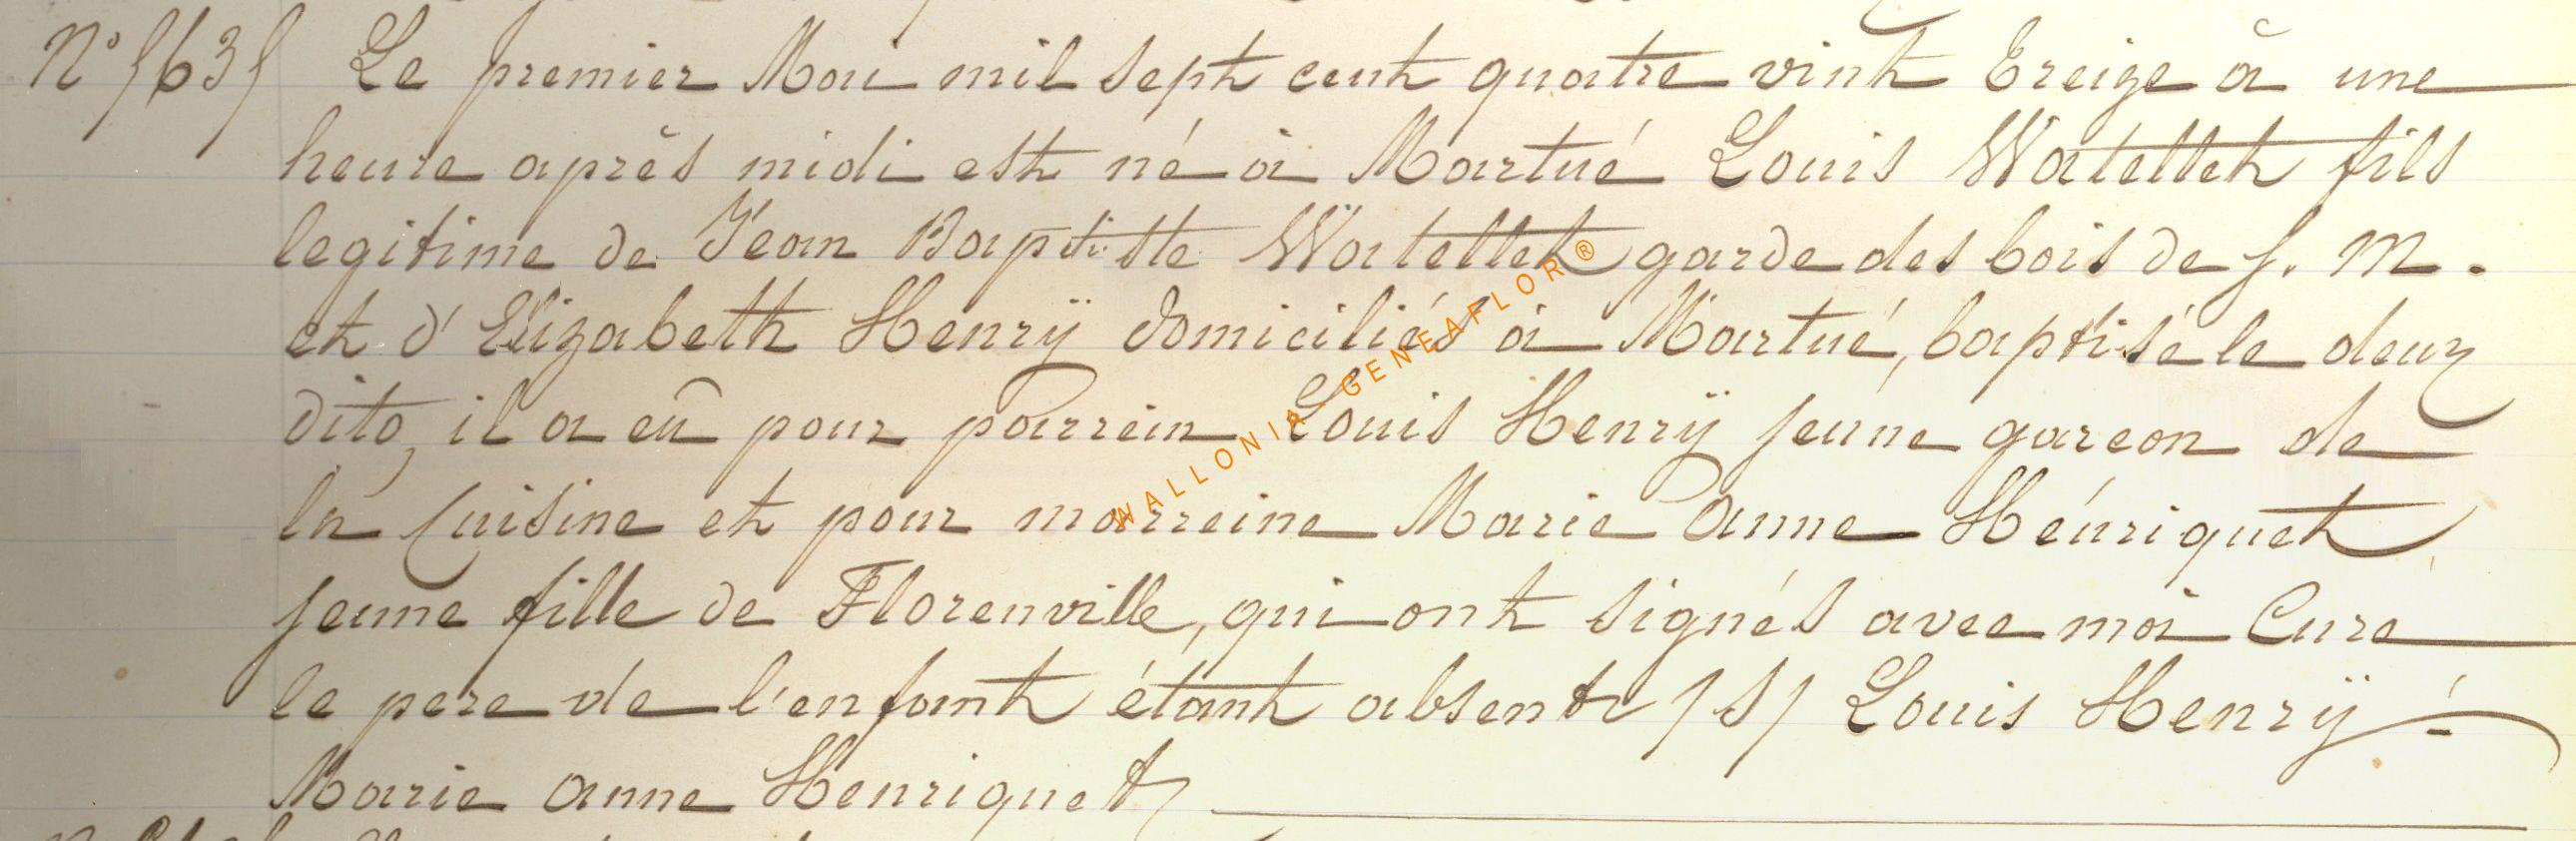 N° /63/ Le premier Mai mil sept cent quatre vint treize à une
heure après midi est né à Martué Louis Watellet fils
legitime de Jean Baptiste Watellet garde des bois de s. M.
et d'Elizabeth Henrÿ domiciliés à Martué, baptisé le deux
dito, il a eu pour parrein Louis Henrÿ jeune garcon de
la Cuisine et pour marreine Marie anne Hénriquet
jeune fille de Florenville, qui ont signés avec moi Curé
le pere de l'enfant étant absent /s/ Louis Henrÿ
Marie anne Henriquet
WALLONIA-GENEAFLOR®